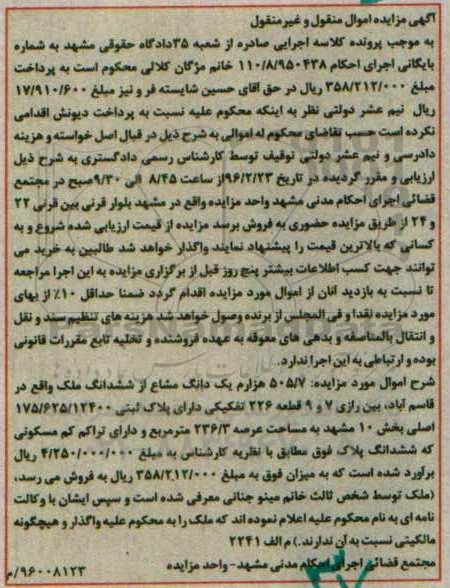 آگهی مزایده اموال منقول و غیرمنقول
به موجب پرونده کلاسه اجرایی صادره از شعبه ۳۵دادگاه حقوقی مشهد به شماره
بایگانی اجرای احکام ۱۱۰/۸/۹۵۰۴۳۸ خانم مژگان کلالی محکوم است به پرداخت
مبلغ ۳۵۸/۲۱۲/۰۰۰ ریال در حق آقای حسین شایسته فر و نیز مبلغ ۱۷/۹۱۰/۶۰۰
ریال نیم عشر دولتی نظر به اینکه محکوم علیه نسبت به پرداخت دیونش اقدامی
نکرده است حسب تقاضای محکوم له اموالی به شرح ذیل در قبال اصل خواسته و هزینه
دادرسی و نیم عشر دولتی توقیف توسط کارشناس رسمی دادگستری به شرح ذیل
ارزیابی و مقرر گردیده در تاریخ ۹۶/۲/۲۳از ساعت ۸/۴۵ الی ۹/۳۰صبح در مجتمع
قضائی اجرای احکام مدنی مشهد واحد مزایده واقع در مشهد بلوار قرنی بین قرنی ۲۲
و ۲۴ از طریق مزایده حضوری به فروش برسد مزایده از قیمت ارزیابی شده شروع و به
کسانی که بالاترین قیمت را پیشنهاد نمایند واگذار خواهد شد طالبین به خرید می
توانند جهت کسب اطلاعات بیشتر پنج روز قبل از برگزاری مزایده به این اجرا مراجعه
تا نسبت به بازدید آنان از اموال مورد مزایده اقدام گردد ضمنا حداقل ۱۰٪ از بهای
مورد مزایده نقدا و فی المجلس از برنده وصول خواهد شد هزینه های تنظیم سند و نقل
و انتقال بالمناصفه و بدهی های معوقه به عهده فروشنده و تخلیه تابع مقررات قانونی
بوده و ارتباطی به این اجرا ندارد.
شرح اموال مورد مزایده: ۵۰۵/۷ هزارم یک دانگ مشاع از ششدانگ ملک واقع در
قاسم آباد، بین رازی ۷ و ۹ قطعه ۲۲۶ تفکیکی دارای پلاک ثبتی ۱۷۵/۶۲۵/۱۲۴۰۰
اصلی بخش ۱۰ مشهد به مساحت عرصه ۲۳۶/۳ مترمربع و دارای تراکم کم مسکونی
که ششدانگ پلاک فوق مطابق با نظریه کارشناس به مبلغ ۴/۲۵۰/۰۰۰/۰۰۰ ریال
برآورد شده است که به میزان فوق به مبلغ ۳۵۸/۲۱۲/۰۰۰ ریال به فروش می رسد،
(ملک توسط شخص ثالث خانم مینو جنانی معرفی شده است و سپس ایشان با وکالت
نامه ای به نام محکوم علیه اعلام نموده اند که ملک را به محکوم علیه واگذار و هیچگونه
مالکیتی نسبت به آن ندارند.) م الف ۲۲۴۱
مجتمع قضائی اجرای احکام مدنی مشهد- واحد مزایده
۹۶۰۰۸۱۲۳/م